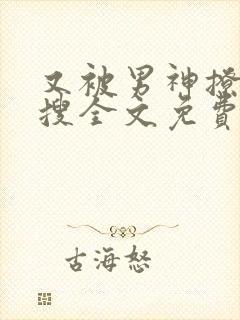 又被男神撩
搜全文免費
古海怒